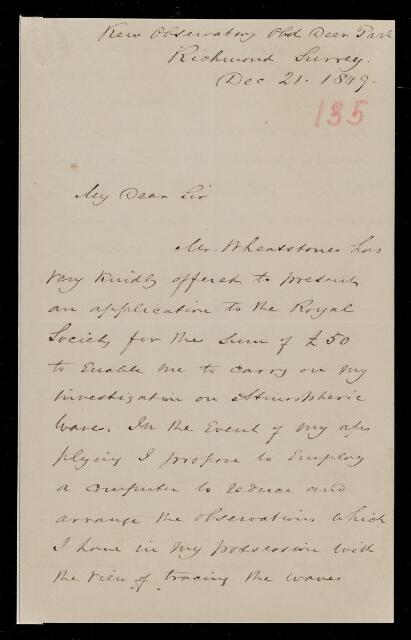 Kew Observatory Old Deer Park
Richmond Surrey.
Dec 21. 1849.
135
My Dear Sir
Mr. Wheatstone has
very kindly offered to present
an application to the Royal
Society for the sum of £50
to Enable me to carry on my
investigation on Atmospheric
Waves. In the Event of my ap
plying I propose to Employ
a computer to reduce and
arrange the observations which
I have in my possession with
the view of tracing the waves